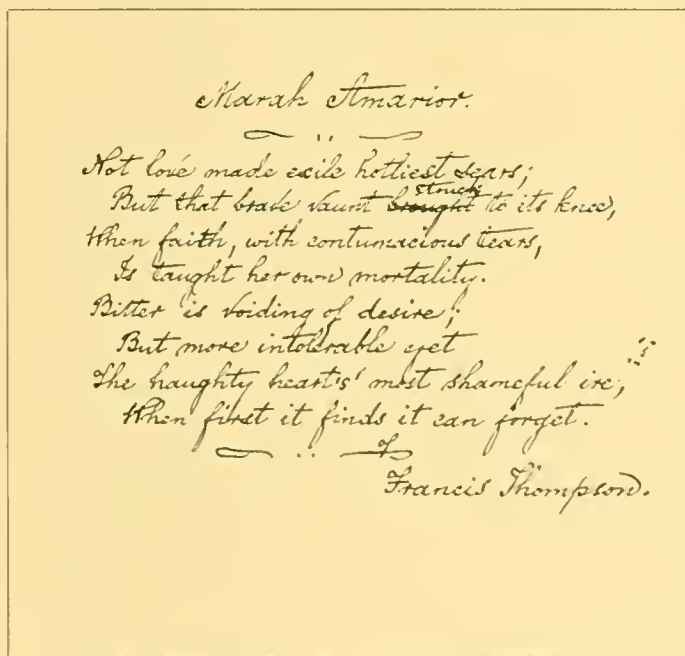 Marah Amarior.
Not love made exile hottiest sears;
But that brave vaunt struck to its knee,
When faith, with contumacious tears,
Is taught her own mortality.
Bitter is voiding of desire;
But more intolerable yet
The haughty heart's' most shameful ire,
When first it finds it can forget.
Francis Thompson.